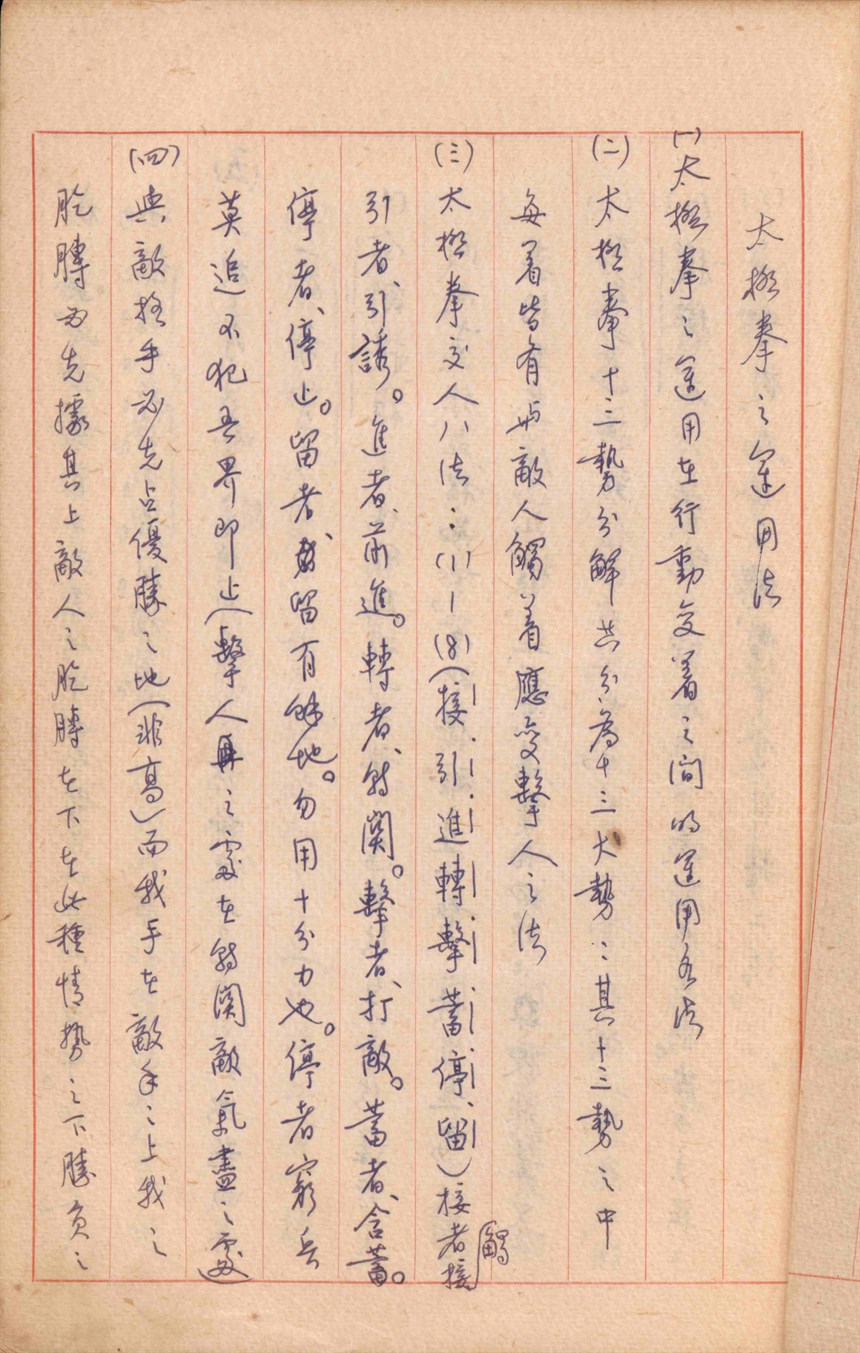 太極拳之運用法
(一)太極拳之運用在行動变着之间的運用各法
(二)太極拳十三势分解共分為十三大势：其十三势之中
每着皆有與敵人觸着應变擊人之法
(三)太極拳交人八法：(1)—(8)(接引進轉擊蓄停留)接者接觸
引者、引誘。進者、前進。轉者、轉関。擊者、打敵。蓄者、含蓄。
停者、停止。留者、留有餘地。勿用十分力也。停者窮兵
莫追不犯吾界即止(擊人再之處在轉関敵氣盡之處)
(四)與敵搭手必先占優勝之地(非高)而我手在敵手之上我之
肐膊为先據其上敵人之肐膊在下在此種情势之下勝負之